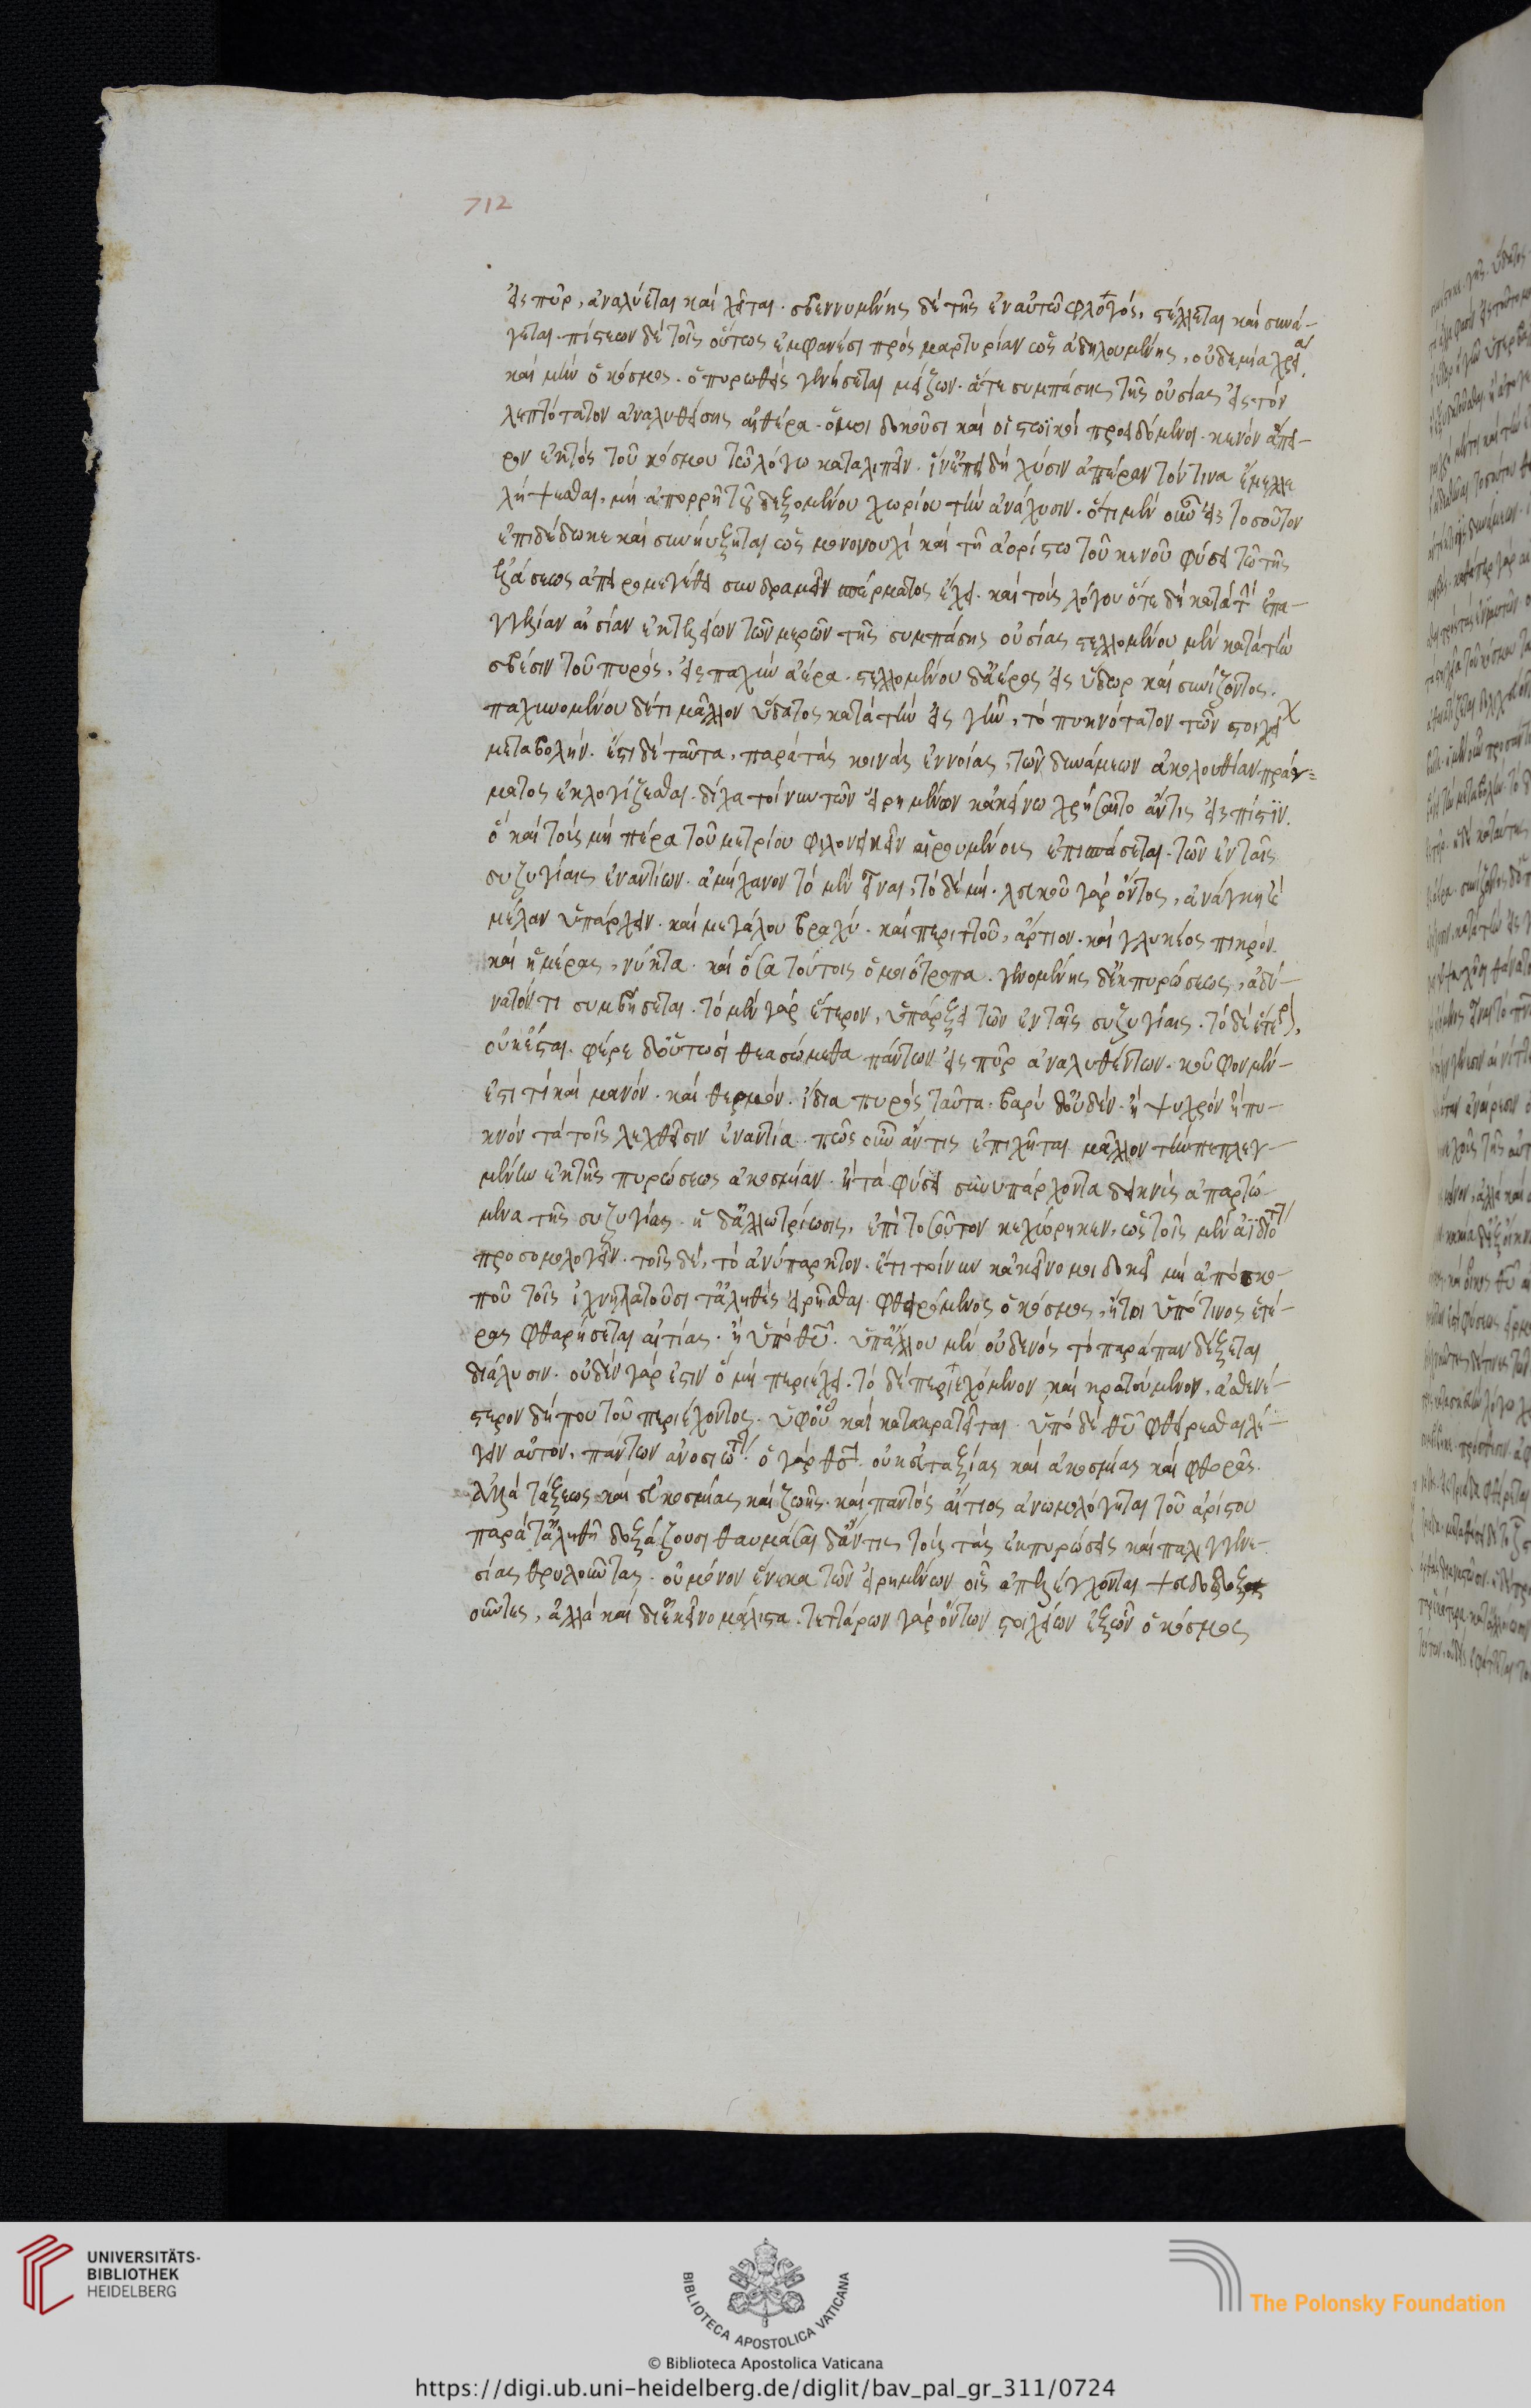 εἰς πῦρ, ἀναλύεται καὶ χεῖται· σβεννυμένης δὲ τῆς ἐν αὐτῶ φλογός, στέλλεται καὶ συνά-
γεται· πίστεων δὲ τοῖς οὕτως ἐμφανέσι πρὸς μαρτυρίαν ὡς ἀδηλουμένης, οὐδεμία χρεία.
καὶ μὴν ὁ κόσμος· ὁ πυρωθεὶς γενήσεται μείζων· ἅτε συμπάσης τῆς οὐσίας εἰς τὸν
λεπτότατον ἀναλυθείσης αἰθέρα· ὅ μοι δοκοῦσι καὶ οἱ στωϊκοὶ προειδόμενοι· κενὸν ἄπει-
ρον ἐκτὸς τοῦ κόσμου τῶ λόγω καταλιπεῖν· ἵν' ἐπειδὴ χύσιν ἀπέραντόν τινα ἔμελλε
λήψεσθαι, μὴ ἀπορρῆ τοῦ δεξομένου χωρίου τὴν ἀνάχυσιν· ὅτι μὲν οὖν εἰς τοσοῦτον
ἐπιδέδωκε καὶ συνηύξηται ὡς μονονουχὶ καὶ τῆ ἀορίστω τοῦ κενοῦ φύσει τῶ τῆς
ἐλάσεως ἀπειρομεγέθει συνδραμεῖν σπέρματος ἔχει· καὶ τοὺς λόγου ὅτε δὲ κατὰ τὴν ἐπα-
γγελίαν αἰσίαν ἐκ τελείων τῶν μερῶν τῆς συμπάσης οὐσίας στελλομένου μὲν κατὰ τὴν
σβέσιν τοῦ πυρὸς, εἰς παχὺν ἀέρα· στελλομένου δ' ἀέρος εἰς ὕδωρ καὶ συνίζοντος·
παχυνομένου δ' ἔτι μᾶλλον ὕδατος κατὰ τὴν εἰς γῆν, τὸ πυκνότατον τῶν στοιχεί
μεταβολήν· ἔστι δὲ ταῦτα, παρὰ τὰς κοινὰς ἐννοίας, τῶν δυναμένων ἀκολουθίαν πράγ-
ματος ἐκλογίζεσθαι· δίχα τοίνυν τῶν εἰρημένων κἀκείνω χρήσαιτο ἄν τις εἰς πίστιν.
ὃ καὶ τοὺς μὴ πέρα τοῦ μετρίου φιλονεικεῖν αἱρουμένους ἐπισπάσεται· τῶν ἐν ταῖς
συζυγίαις ἐναντίων· ἀμήχανον τὸ μὲν εἶναι, τὸ δὲ μή· λευκοῦ γὰρ ὄντος, ἀνάγκη καὶ
μέλαν ὑπάρχειν· καὶ μεγάλου βραχύ· καὶ περιττοῦ, ἄρτιον· καὶ γλυκέος πικρόν.
καὶ ἡμέρας, νύκτα· καὶ ὅσα τούτοις ὁμοιότροπα· γενομένης δ' ἐκπυρώσεως, ἀδύ-
νατόν τι συμβήσεται· τὸ μὲν γὰρ ἕτερον, ὑπάρξει τῶν ἐν ταῖς συζυγίαις· τὸ δὲ ἕτερον,
οὐκ ἔσται· φέρε δ' οὑτωσὶ θεασώμεθα πάντων εἰς πῦρ ἀναλυθέντων· κοῦφον μέν
ἐστί τι καὶ μανόν· καὶ θερμόν· ἴδια πυρὸς ταῦτα· βαρὺ δ' οὐδέν· ἢ ψυχρὸν ἢ πυ-
κνὸν τὰ τοῖς λεχθεῖσιν ἐναντία· πῶς οὖν ἄν τις ἐπιχεῖται μᾶλλον τὴν πεπλεγ-
μένην ἐκ τῆς πυρώσεως ἀκοσμίαν· ἢ τὰ φύσει συνυπάρχοντα δεικνὺς ἀπαρτώ-
μενα τῆς συζυγίας· ἡ δ' ἀλλοτρίωσις, ἐπὶ τοσοῦτον κεχώρηκεν, ὡς τοῖς μὲν ἀϊδιότητα
προσομολογεῖν· τοῖς δὲ, τὸ ἀνύπαρκτον· ἔτι τοίνυν κἀκεῖνό μοι δοκεῖ μὴ ἀπὸ σκο-
ποῦ τοῖς ἰχνηλατοῦσι τἀληθὲς εἰρῆσθαι· φθειρόμενος ὁ κόσμος, ἤτοι ὑπό τινος ἑτέ-
ρας φθαρήσεται αἰτίας· ἢ ὑπὸ θυ̅· ὑπ' ἄλλου μὲν οὐδενὸς τὸ παράπαν δέξεται
διάλυσιν· οὐδὲν γάρ ἐστιν ὃ μὴ περιέχει· τὸ δὲ περιεχόμενον καὶ κρατούμενον, ἀσθενέ-
στερον δήπου τοῦ περιέχοντος· ὑφ' οὗ καὶ κατακρατεῖται· ὑπὸ δὲ θυ̅ φθείρεσθαι λέ-
γειν αὐτὸν, πάντων ἀνοσιώτ· ὁ γὰρ θς̅ οὐκ ἀταξίας καὶ ἀκοσμίας καὶ φθορᾶς.
ἀλλὰ τάξεως καὶ εὐκοσμίας καὶ ζωῆς· καὶ παντὸς αἴτιος ἀνωμολόγηται τοῦ ἀρίστου
παρὰ τἀληθῆ δοξάζουσι θαυμάσαι δ' ἄν τις τοὺς τὰς ἐκπυρώσεις καὶ παλιγγενε-
σίας θρυλοῦντας· οὐ μόνον ἕνεκα τῶν εἰρημένων οἷς ἀπελέγχονται ψευδοδοξ
οῦντες, ἀλλὰ καὶ δι' ἐκεῖνο μάλιστα· τεττάρων γὰρ ὄντων στοιχείων ἐξ ὧν ὁ κόσμος
712
UNIVERSITÄTS-
BIBLIOTHEK
HEIDELBERG
BIBLIOTECA APOSTOLICA VATICANA
The Polonsky Foundation
© Biblioteca Apostolica Vaticana
https://digi.ub.uni-heidelberg.de/diglit/bav_pal_gr_311/0724